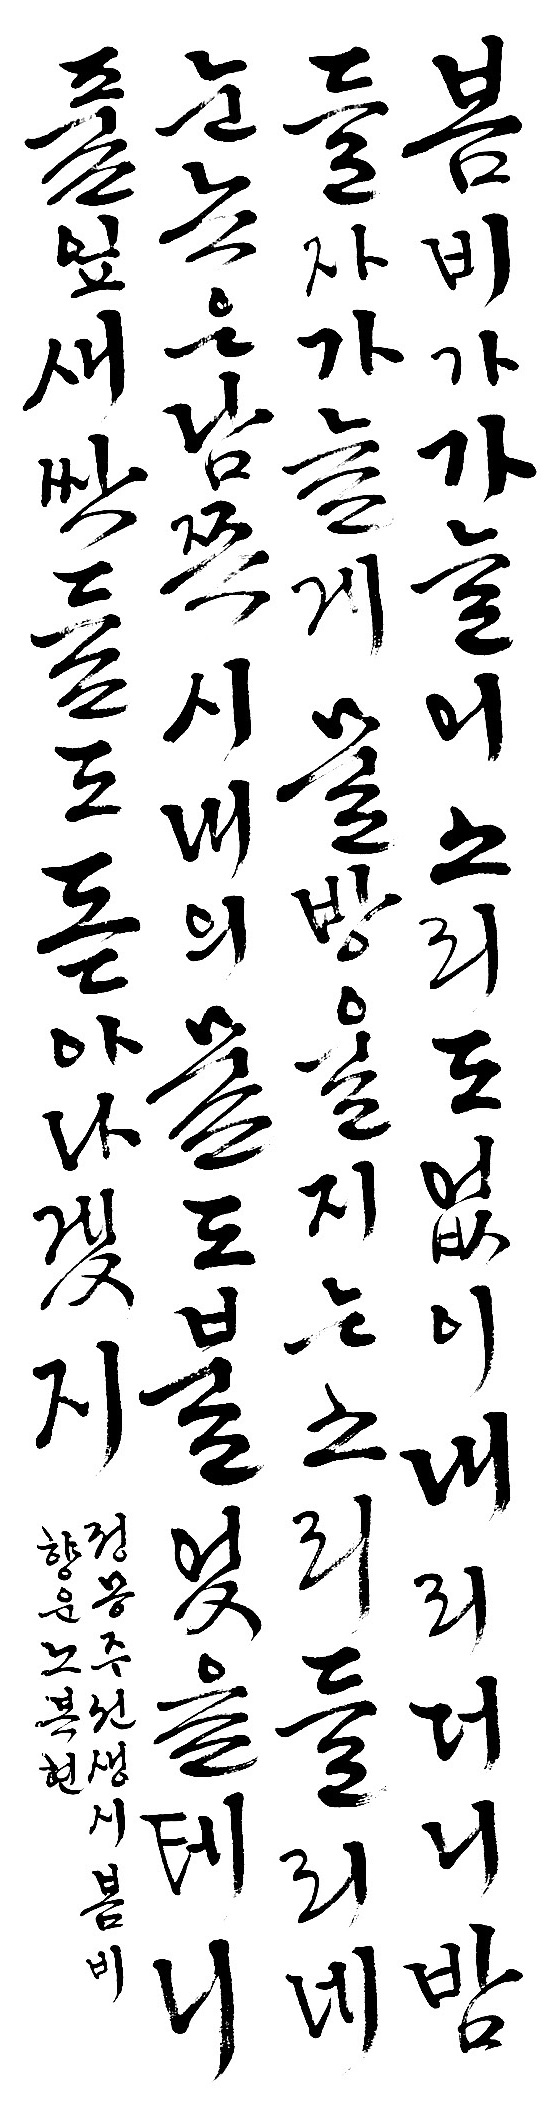 봄비가가늘어소리도없이내리더니밤
들자가늘게물방울지는소리들리네
눈녹은남쪽시내의물도불었을테니
풀잎새싹들도돋아나겠지
정몽주선생시봄비
향운노복현